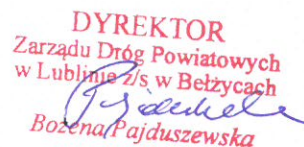 DYREKTOR
Zarządu Dróg Powiatowych
w Lublinie z/s w Bełżycach
Bożena Pajduszewska